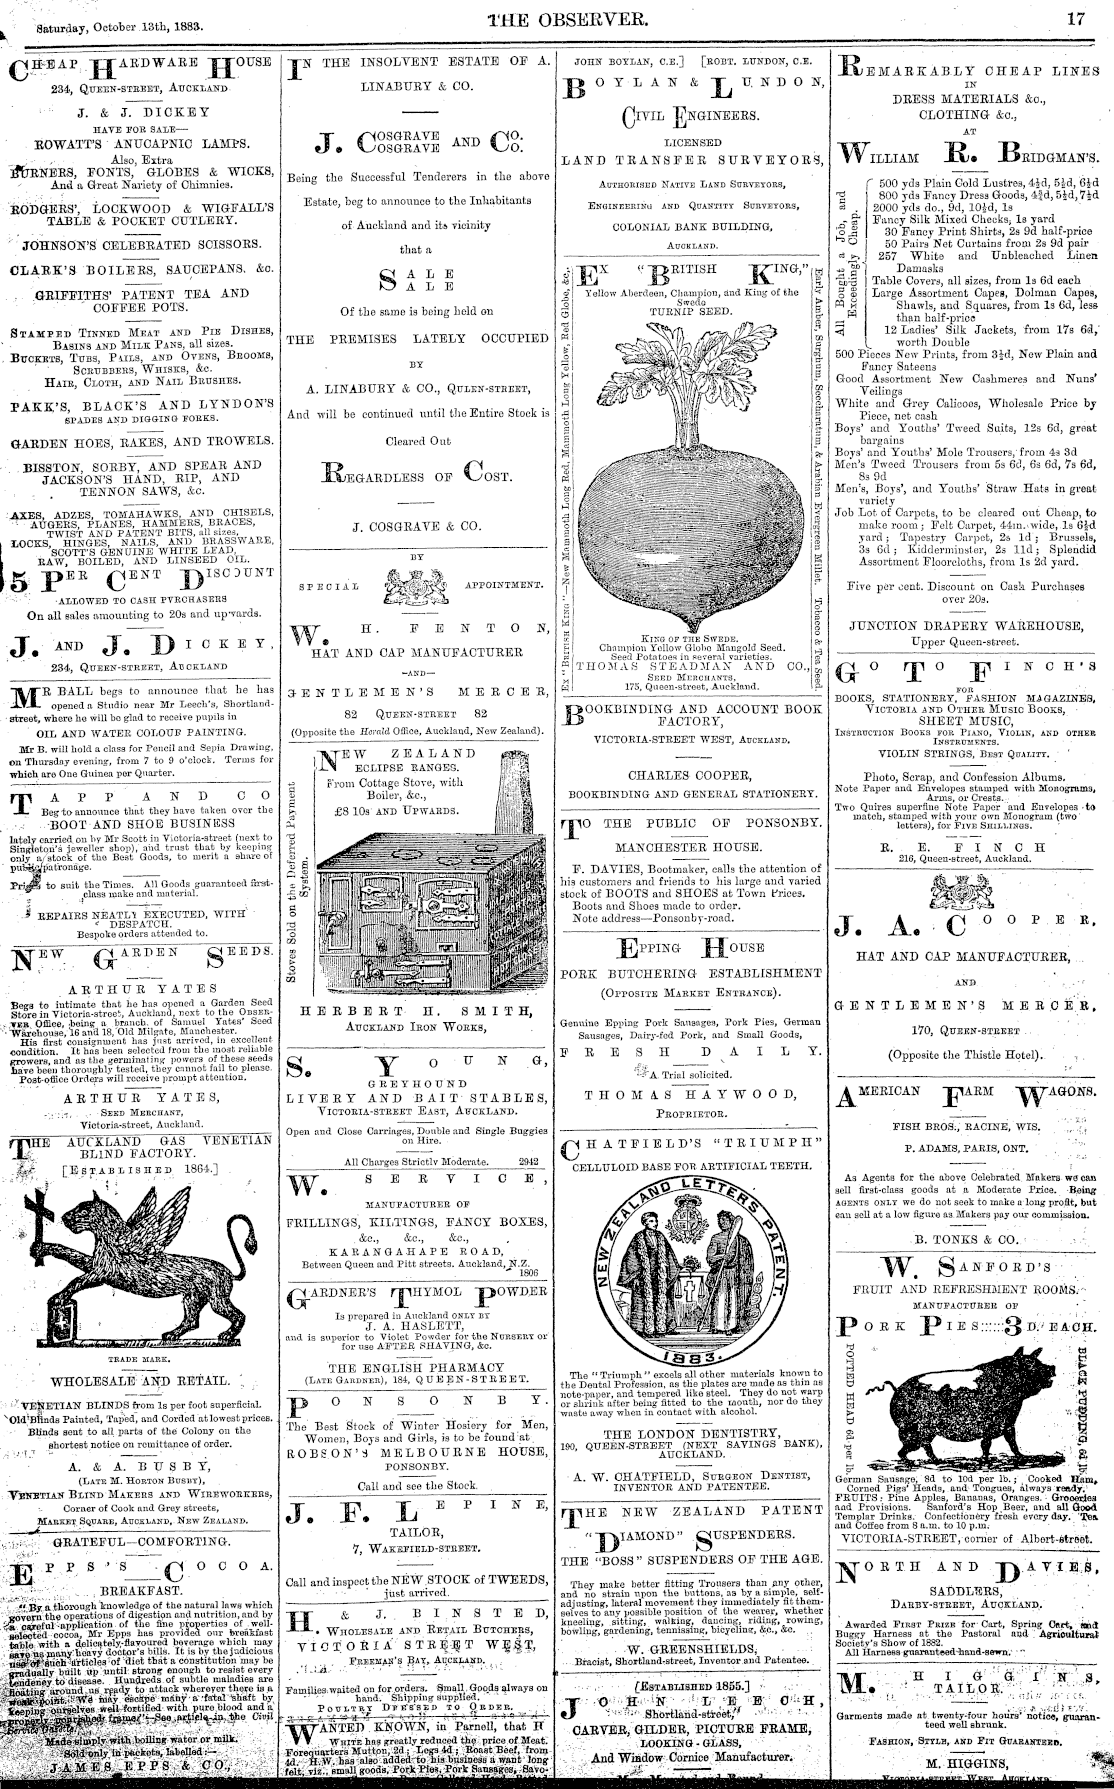 Saturday, October 13th, 1883.
THE OBSERVER.
17
CHEAP HARDWARE HOUSE
234, QUEEN-STREET, AUCKLAND
J. & J. DICKEY
HAVE FOR SALE—
ROWATT'S ANUCAPNIC LAMPS.
Also, Extra
BURNERS, FONTS, GLOBES & WICKS,
And a Great Nariety of Chimnies.
RODGERS', LOCKWOOD & WIGFALL'S
TABLE & POCKET CUTLERY.
JOHNSON'S CELEBRATED SCISSORS.
CLARK'S BOILERS, SAUCEPANS, &c.
GRIFFITHS' PATENT TEA AND
COFFEE POTS.
STAMPED TINNED MEAT AND PIE DISHES,
BASINS AND MILK PANS, all sizes.
BUCKETS, TUBS, PAILS, AND OVENS, BROOMS,
SCRUBBERS, WHISKS, &c.
HAIR, CLOTH, AND NAIL BRUSHES.
PARK'S, BLACK'S AND LYNDON'S
SPADES AND DIGGING FORKS.
GARDEN HOES, RAKES, AND TROWELS.
BISSTON, SORBY, AND SPEAR AND
JACKSON'S HAND, RIP, AND
TENNON SAWS, &c.
AXES, ADZES, TOMAHAWKS, AND CHISELS,
AUGERS, PLANES, HAMMERS, BRACES,
TWIST AND PATENT BITS, all sizes,
LOCKS, HINGES, NAILS, AND BRASSWARE,
SCOTT'S GENUINE WHITE LEAD,
RAW, BOILED, AND LINSEED OIL.
5 PER CENT DISCOUNT
ALLOWED TO CASH PURCHASERS
On all sales amounting to 20s and upwards.
J. AND J. DICKEY,
234, QUEEN-STREET, AUCKLAND
MR BALL begs to announce that he has
opened a Studio near Mr Leech's, Shortland-
street, where he will be glad to receive pupils in
OIL AND WATER COLOUR PAINTING.
Mr B. will hold a class for Pencil and Sepia Drawing,
on Thursday evening, from 7 to 9 o'clock. Terms for
which are One Guinea per Quarter.
TAPP AND CO
Beg to announce that they have taken over the
BOOT AND SHOE BUSINESS
lately carried on by Mr Scott in Victoria-street (next to
Singleton's jeweller shop), and trust that by keeping
only a stock of the Best Goods, to merit a share of
public patronage.
Prices to suit the Times. All Goods guaranteed first-
class make and material.
REPAIRS NEATLY EXECUTED, WITH
DESPATCH.
Bespoke orders attended to.
NEW GARDEN SEEDS.
ARTHUR YATES
Begs to intimate that he has opened a Garden Seed
Store in Victoria-street, Auckland, next to the OBSER-
VER Office, being a branch of Samuel Yates' Seed
Warehouse, 16 and 18, Old Milgate, Manchester.
His first consignment has just arrived, in excellent
condition. It has been selected from the most reliable
growers, and as the germinating powers of these seeds
have been thoroughly tested, they cannot fail to please.
Post-office Orders will receive prompt attention.
ARTHUR YATES,
SEED MERCHANT,
Victoria-street, Auckland.
THE AUCKLAND GAS VENETIAN
BLIND FACTORY.
[ESTABLISHED 1864.]
TRADE MARK.
WHOLESALE AND RETAIL.
VENETIAN BLINDS from 1s per foot superficial.
Old Blinds Painted, Taped, and Corded at lowest prices.
Blinds sent to all parts of the Colony on the
shortest notice on remittance of order.
A. & A. BUSBY,
(LATE M. HORTON BUSBY),
VENETIAN BLIND MAKERS AND WIREWORKERS,
Corner of Cook and Grey streets,
MARKET SQUARE, AUCKLAND, NEW ZEALAND.
GRATEFUL—COMFORTING.
EPPS'S COCOA.
BREAKFAST.
"By a thorough knowledge of the natural laws which
govern the operations of digestion and nutrition, and by
a careful application of the fine properties of well-
selected cocoa, Mr Epps has provided our breakfast
table with a delicately-flavoured beverage which may
save us many heavy doctor's bills. It is by the judicious
use of such articles of diet that a constitution may be
gradually built up until strong enough to resist every
tendency to disease. Hundreds of subtle maladies are
floating around us ready to attack wherever there is a
weak point. We may escape many a fatal shaft by
keeping ourselves well fortified with pure blood and a
properly nourished frame."—See article in the Civil
Service Gazette.
Made simply with boiling water or milk.
Sold only in packets, labelled:—
JAMES EPPS & CO.,
IN THE INSOLVENT ESTATE OF A.
LINABURY & CO.
J. COSGRAVE AND CO.
COSGRAVE CO.
Being the Successful Tenderers in the above
Estate, beg to announce to the Inhabitants
of Auckland and its vicinity
that a
SALE
SALE
Of the same is being held on
THE PREMISES LATELY OCCUPIED
BY
A. LINABURY & CO., QULEN-STREET,
And will be continued until the Entire Stock is
Cleared Out
REGARDLESS OF COST.
J. COSGRAVE & CO.
BY
SPECIAL APPOINTMENT.
W. H. FENTON,
HAT AND CAP MANUFACTURER
—AND—
GENTLEMEN'S MERCER,
82 QUEEN-STREET 82
(Opposite the Herald Office, Auckland, New Zealand).
NEW ZEALAND
ECLIPSE RANGES.
From Cottage Stove, with
Boiler, &c.,
£8 10s AND UPWARDS.
Stoves Sold on the Deferred Payment
System.
HERBERT H. SMITH,
AUCKLAND IRON WORKS,
S. YOUNG,
GREYHOUND
LIVERY AND BAIT STABLES,
VICTORIA-STREET EAST, AUCKLAND.
Open and Close Carriages, Double and Single Buggies
on Hire.
All Charges Strictly Moderate. 2942
W. SERVICE,
MANUFACTURER OF
FRILLINGS, KILTINGS, FANCY BOXES,
&c., &c., &c.,
KARANGAHAPE ROAD,
Between Queen and Pitt streets. Auckland, N.Z.
1806
GARDNER'S THYMOL POWDER
Is prepared in Auckland ONLY BY
J. A. HASLETT,
and is superior to Violet Powder for the NURSERY or
for use AFTER SHAVING, &c.
THE ENGLISH PHARMACY
(LATE GARDNER), 184, QUEEN-STREET.
PONSONBY.
The Best Stock of Winter Hosiery for Men,
Women, Boys and Girls, is to be found at
ROBSON'S MELBOURNE HOUSE,
PONSONBY.
Call and see the Stock.
J. F. LEPINE,
TAILOR,
7, WAKEFIELD-STREET.
Call and inspect the NEW STOCK of TWEEDS,
just arrived.
H. & J. BINSTED,
WHOLESALE AND RETAIL BUTCHERS,
VICTORIA STREET WEST,
FREEMAN'S BAY, AUCKLAND.
Families waited on for orders. Small Goods always on
hand. Shipping supplied.
POULTRY DRESSED TO ORDER.
WANTED KNOWN, in Parnell, that H
WHITE has greatly reduced the price of Meat.
Forequarters Mutton, 2d; Legs 4d; Roast Beef, from
4d. H.W. has also added to his business a want long
felt, viz., small goods, Pork Pies, Pork Sausages, Savo-
JOHN BOYLAN, C.E.] [ROBT. LUNDON, C.E.
BOYLAN & LUNDON,
CIVIL ENGINEERS.
LICENSED
LAND TRANSFER SURVEYORS,
AUTHORISED NATIVE LAND SURVEYORS,
ENGINEERING AND QUANTITY SURVEYORS,
COLONIAL BANK BUILDING,
AUCKLAND.
EX "BRITISH KING,"
Yellow Aberdeen, Champion, and King of the
Swede
TURNIP SEED.
Ex "BRITISH KING"—New Mammoth Long Red, Mammoth Long Yellow, Red Globe, &c.,
Early Amber, Surghum, Saccharatum, & Arabian Evergreen Millet. Tobacco & Tea Seed.
KING OF THE SWEDE.
Champion Yellow Globe Mangold Seed.
Seed Potatoes in several varieties.
THOMAS STEADMAN AND CO.,
SEED MERCHANTS,
175, Queen-street, Auckland.
BOOKBINDING AND ACCOUNT BOOK
FACTORY,
VICTORIA-STREET WEST, AUCKLAND.
CHARLES COOPER,
BOOKBINDING AND GENERAL STATIONERY.
TO THE PUBLIC OF PONSONBY.
MANCHESTER HOUSE.
F. DAVIES, Bootmaker, calls the attention of
his customers and friends to his large and varied
stock of BOOTS and SHOES at Town Prices.
Boots and Shoes made to order.
Note address—Ponsonby-road.
EPPING HOUSE
PORK BUTCHERING ESTABLISHMENT
(OPPOSITE MARKET ENTRANCE).
Genuine Epping Pork Sausages, Pork Pies, German
Sausages, Dairy-fed Pork, and Small Goods,
FRESH DAILY.
A Trial solicited.
THOMAS HAYWOOD,
PROPRIETOR.
CHATFIELD'S "TRIUMPH"
CELLULOID BASE FOR ARTIFICIAL TEETH.
NEW ZEALAND LETTERS PATENT
1883.
The "Triumph" excels all other materials known to
the Dental Profession, as the plates are made as thin as
note-paper, and tempered like steel. They do not warp
or shrink after being fitted to the mouth, nor do they
waste away when in contact with alcohol.
THE LONDON DENTISTRY,
190, QUEEN-STREET (NEXT SAVINGS BANK),
AUCKLAND.
A. W. CHATFIELD, SURGEON DENTIST,
INVENTOR AND PATENTEE.
THE NEW ZEALAND PATENT
"DIAMOND" SUSPENDERS.
THE "BOSS" SUSPENDERS OF THE AGE.
They make better fitting Trousers than any other,
and no strain upon the buttons, as by a simple, self-
adjusting, lateral movement they immediately fit them-
selves to any possible position of the wearer, whether
kneeling, sitting, walking, dancing, riding, rowing,
bowling, gardening, tennissing, bicycling, &c., &c.
W. GREENSHIELDS,
Bracist, Shortland-street, Inventor and Patentee.
[ESTABLISHED 1855.]
JOHN LEECH,
Shortland-street,
CARVER, GILDER, PICTURE FRAME,
LOOKING-GLASS,
And Window Cornice Manufacturer.
REMARKABLY CHEAP LINES
IN
DRESS MATERIALS &c.,
CLOTHING &c.,
AT
WILLIAM R. BRIDGMAN'S.
All Bought a Job, and
Exceedingly Cheap.
500 yds Plain Cold Lustres, 4½d, 5½d, 6½d
800 yds Fancy Dress Goods, 4¾d, 5½d, 7½d
2000 yds do., 9d, 10½d, 1s
Fancy Silk Mixed Checks, 1s yard
30 Fancy Print Shirts, 2s 9d half-price
50 Pairs Net Curtains from 2s 9d pair
257 White and Unbleached Linen
Damasks
Table Covers, all sizes, from 1s 6d each
Large Assortment Capes, Dolman Capes,
Shawls, and Squares, from 1s 6d, less
than half-price
12 Ladies' Silk Jackets, from 17s 6d,
worth Double
500 Pieces New Prints, from 3½d, New Plain and
Fancy Sateens
Good Assortment New Cashmeres and Nuns'
Veilings
White and Grey Calicoes, Wholesale Price by
Piece, net cash
Boys' and Youths' Tweed Suits, 12s 6d, great
bargains
Boys' and Youths' Mole Trousers, from 4s 3d
Men's Tweed Trousers from 5s 6d, 6s 6d, 7s 6d,
8s 9d
Men's, Boys', and Youths' Straw Hats in great
variety
Job Lot of Carpets, to be cleared out Cheap, to
make room; Felt Carpet, 44in. wide, 1s 6½d
yard; Tapestry Carpet, 2s 1d; Brussels,
3s 6d; Kidderminster, 2s 11d; Splendid
Assortment Floorcloths, from 1s 2d yard.
Five per cent. Discount on Cash Purchases
over 20s.
JUNCTION DRAPERY WAREHOUSE,
Upper Queen-street.
GO TO FINCH'S
FOR
BOOKS, STATIONERY, FASHION MAGAZINES,
VICTORIA AND OTHER MUSIC BOOKS,
SHEET MUSIC,
INSTRUCTION BOOKS FOR PIANO, VIOLIN, AND OTHER
INSTRUMENTS.
VIOLIN STRINGS, BEST QUALITY.
Photo, Scrap, and Confession Albums.
Note Paper and Envelopes stamped with Monograms,
Arms, or Crests.
Two Quires superfine Note Paper and Envelopes to
match, stamped with your own Monogram (two
letters), for FIVE SHILLINGS.
R. E. FINCH
216, Queen-street, Auckland.
J. A. COOPER,
HAT AND CAP MANUFACTURER,
AND
GENTLEMEN'S MERCER,
170, QUEEN-STREET
(Opposite the Thistle Hotel).
AMERICAN FARM WAGONS.
FISH BROS., RACINE, WIS.
P. ADAMS, PARIS, ONT.
As Agents for the above Celebrated Makers we can
sell first-class goods at a Moderate Price. Being
AGENTS ONLY we do not seek to make a long profit, but
can sell at a low figure as Makers pay our commission.
B. TONKS & CO.
W. SANFORD'S
FRUIT AND REFRESHMENT ROOMS.
MANUFACTURER OF
PORK PIES:::::3D. EACH.
POTTED HEAD 6d per lb.
BLACK PUDDING, 6d lb.
German Sausage, 8d to 10d per lb.; Cooked Ham,
Corned Pigs' Heads, and Tongues, always ready.
FRUITS: Pine Apples, Bananas, Oranges. Groceries
and Provisions. Sanford's Hop Beer, and all Good
Templar Drinks. Confectionery fresh every day. Tea
and Coffee from 8 a.m. to 10 p.m.
VICTORIA-STREET, corner of Albert-street.
NORTH AND DAVIES,
SADDLERS,
DARBY-STREET, AUCKLAND.
Awarded FIRST PRIZE for Cart, Spring Cart, and
Buggy Harness at the Pastoral and Agricultural
Society's Show of 1882.
All Harness guaranteed hand-sewn.
M. HIGGINS,
TAILOR,
Garments made at twenty-four hours' notice, guaran-
teed well shrunk.
FASHION, STYLE, AND FIT GUARANTEED.
M. HIGGINS,
VICTORIA-STREET WEST, AUCKLAND.